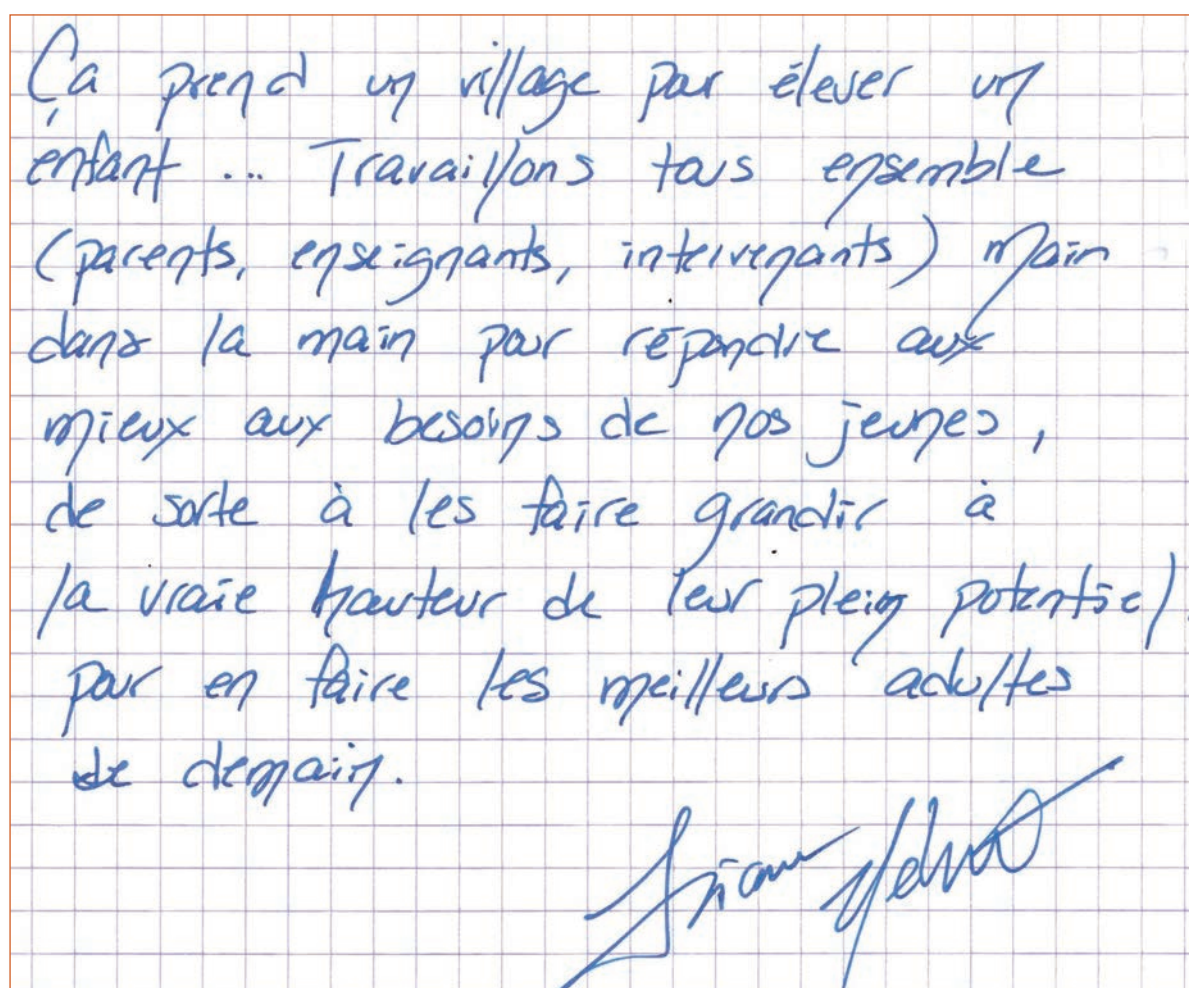 Ça prend un village pour élever un
enfant ... Travaillons tous ensemble
(parents, enseignants, intervenants) main
dans la main pour répondre aux
mieux aux besoins de nos jeunes,
de sorte à les faire grandir à
la vraie hauteur de leur plein potentiel.
pour en faire les meilleurs adultes
de demain.